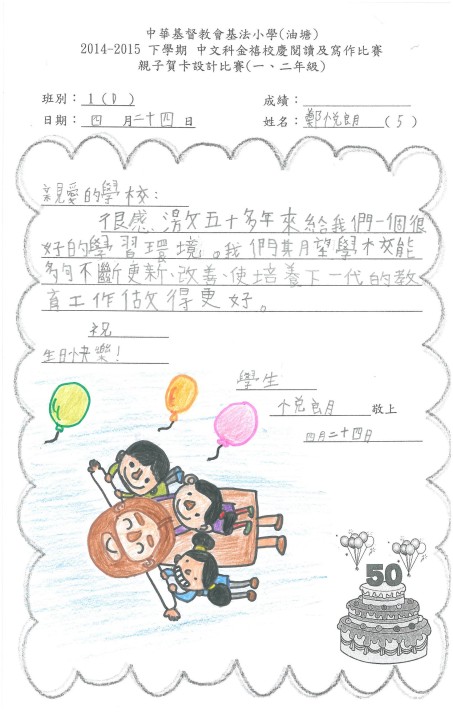 中華基督教會基法小學(油塘)
2014-2015 下學期 中文科金禧校慶閱讀及寫作比賽
親子賀卡設計比賽(一、二年級)
班別：1(D) 成績：
日期：四月二十四日 姓名：鄭悅朗(5)
親愛的學校：
很感謝你五十多年來給我們一個很
好的學習環境。我們期望學校能
夠不斷更新、改善、使培養下一代的教
育工作做得更好。
祝
生日快樂！
學生
悅朗 敬上
四月二十四日
50